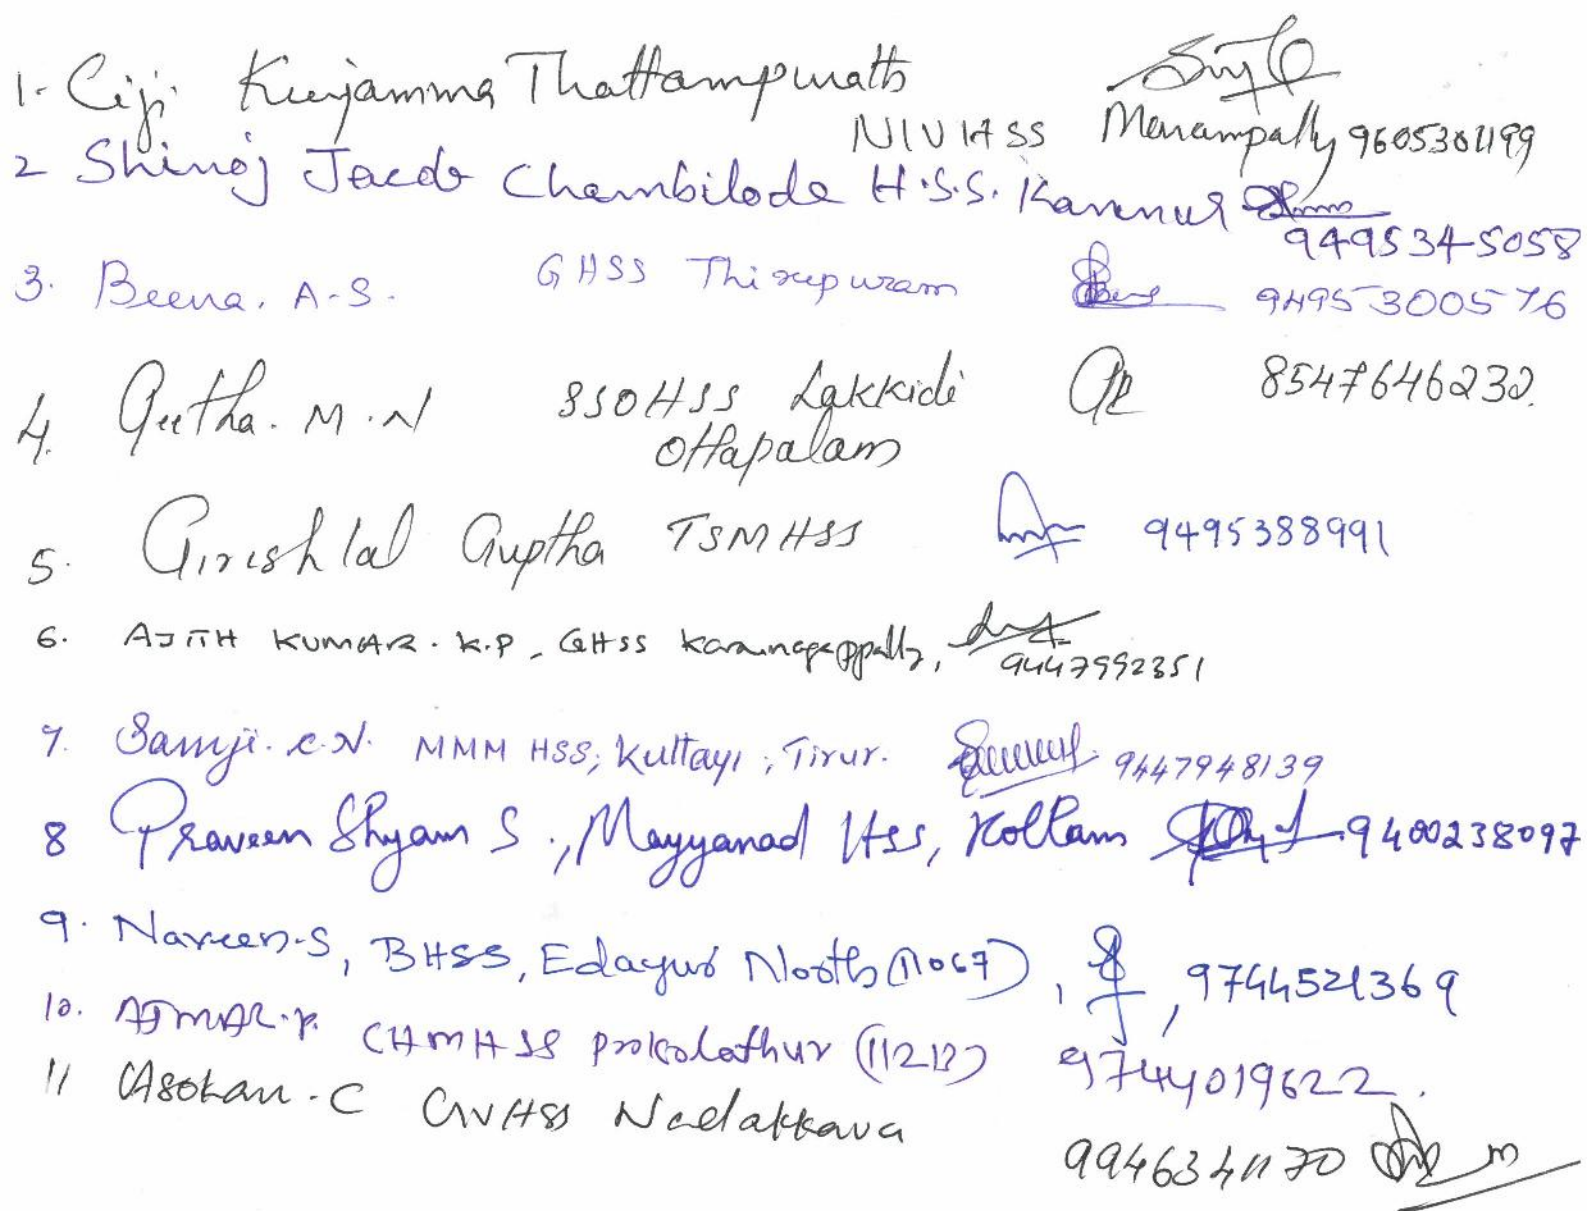 1. Ciji Kunjamma Thattampurath
NIVHSS Marampally 9605301199
2 Shinoj Jacob Chembilode H.S.S. Kannur
9495345058
3. Beena. A.S. GHSS Thirupuram 9495300576
4. Geetha. M.N SSOHSS Lakkidi 8547646232.
Ottapalam
5. Girish lal Guptha TSMHSS 9495388991
6. AJITH KUMAR. K.P, GHSS Karunagappally,
9447992351
7. Samji. C.N. MMM HSS, Kuttayi, Tirur. 9447948139
8 Praveen Shyam S., Mayyanad HSS, Kollam 9400238097
9. Naveen.S, BHSS, Edayur North (11067), 9744521369
10. AJMAL.P. CHMHSS Pookolathur (11213) 9744019622.
11 Asokan.C GVHSS Nadakkavu
9946341170